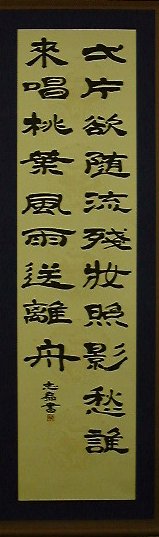 弌片欲随流殘妝照影愁誰
來唱桃葉風雨送離舟
志書